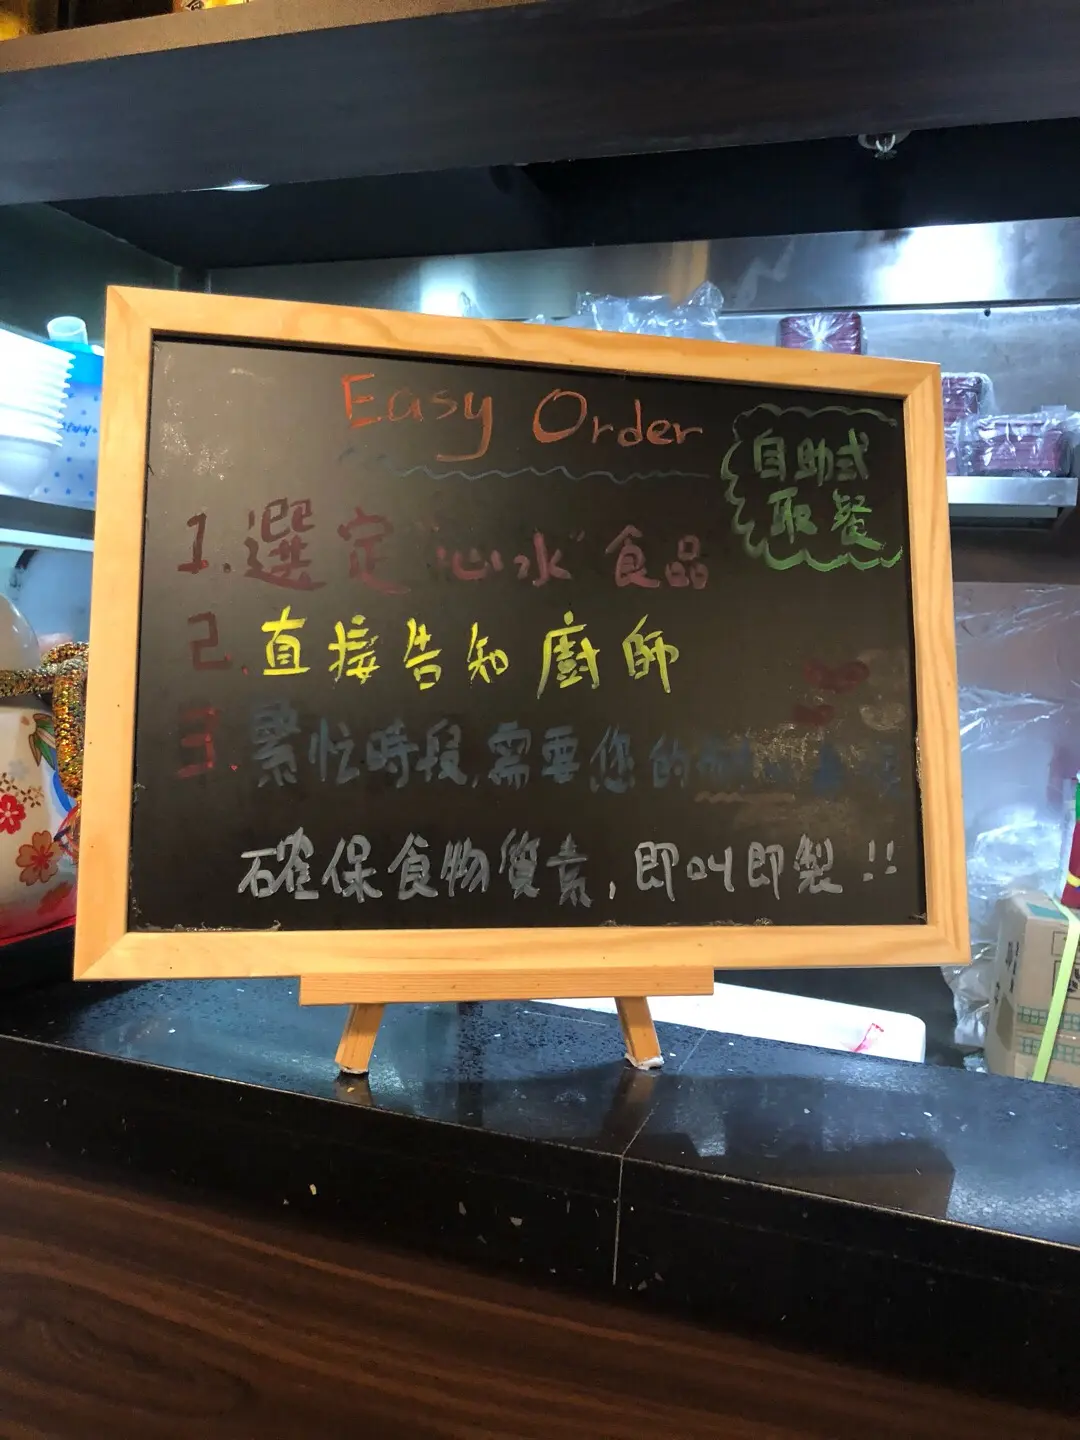 Easy Order
自助式
取餐
1. 選定"心水"食品
2. 直接告知廚師
3. 繁忙時段,需要您的耐
確保食物質素,即叫即製!!